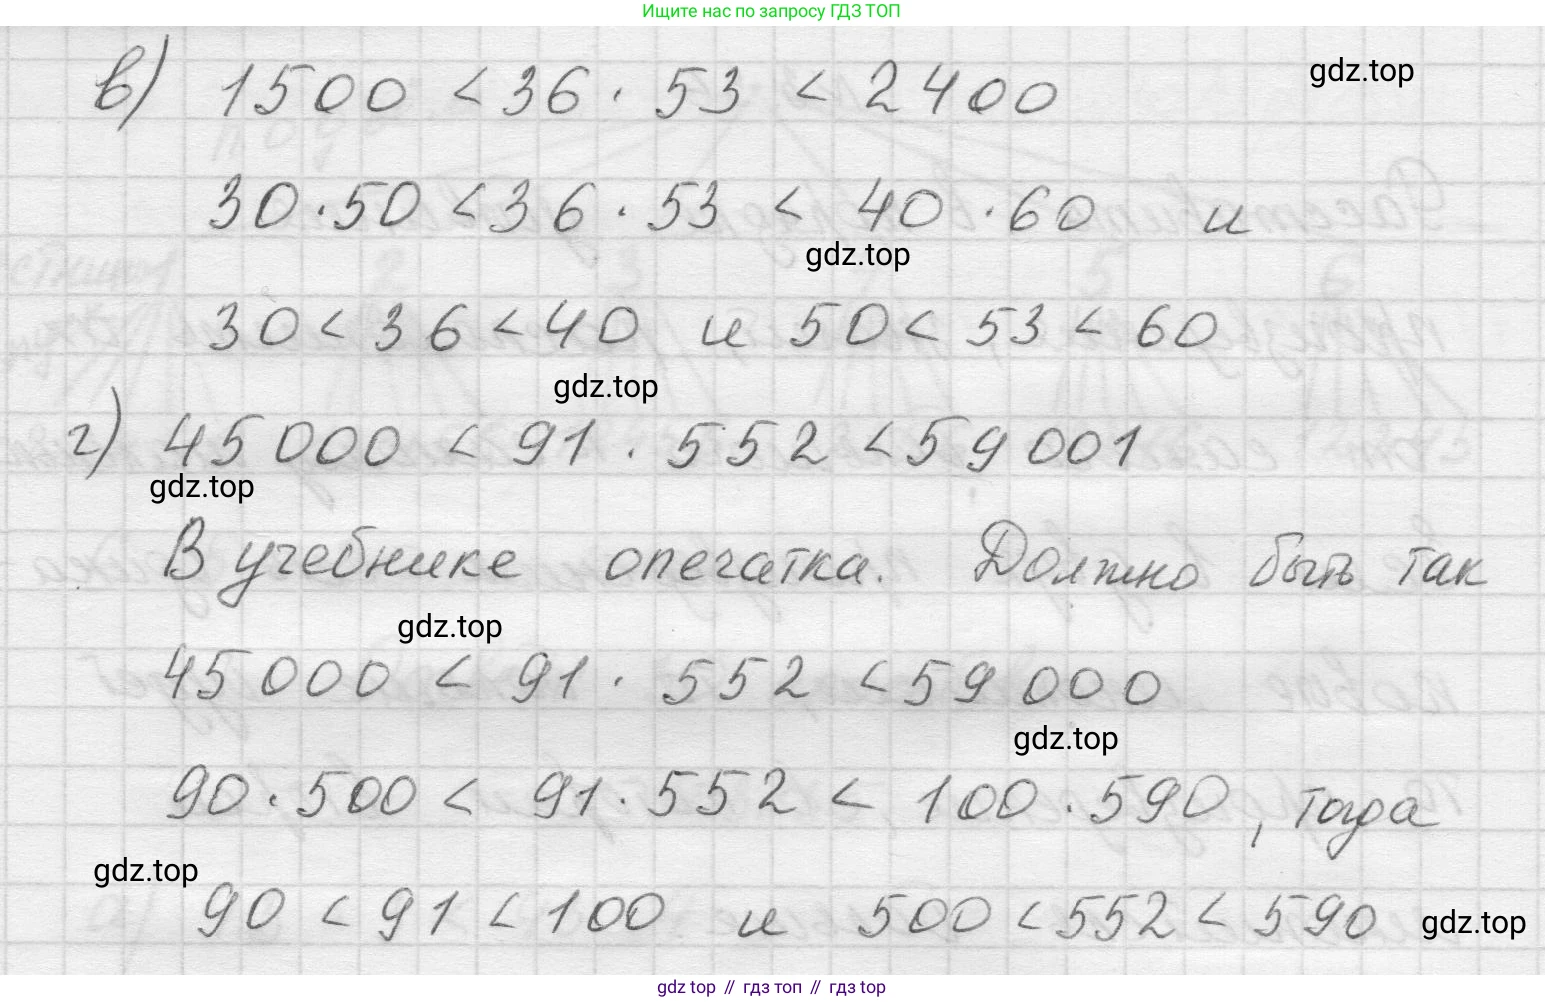 Ищите нас по запросу ГДЗ ТОП
в) 1500 < 36 · 53 < 2400
gdz.top
30 · 50 < 36 · 53 < 40 · 60 и
gdz.top
30 < 36 < 40 и 50 < 53 < 60
gdz.top
г) 45 000 < 91 · 552 < 59 001
gdz.top
В учебнике опечатка. Должно быть так
gdz.top
45 000 < 91 · 552 < 59 000
gdz.top
90 · 500 < 91 · 552 < 100 · 590, тогда
gdz.top
90 < 91 < 100 и 500 < 552 < 590
gdz.top
gdz top // гдз топ // гдз top